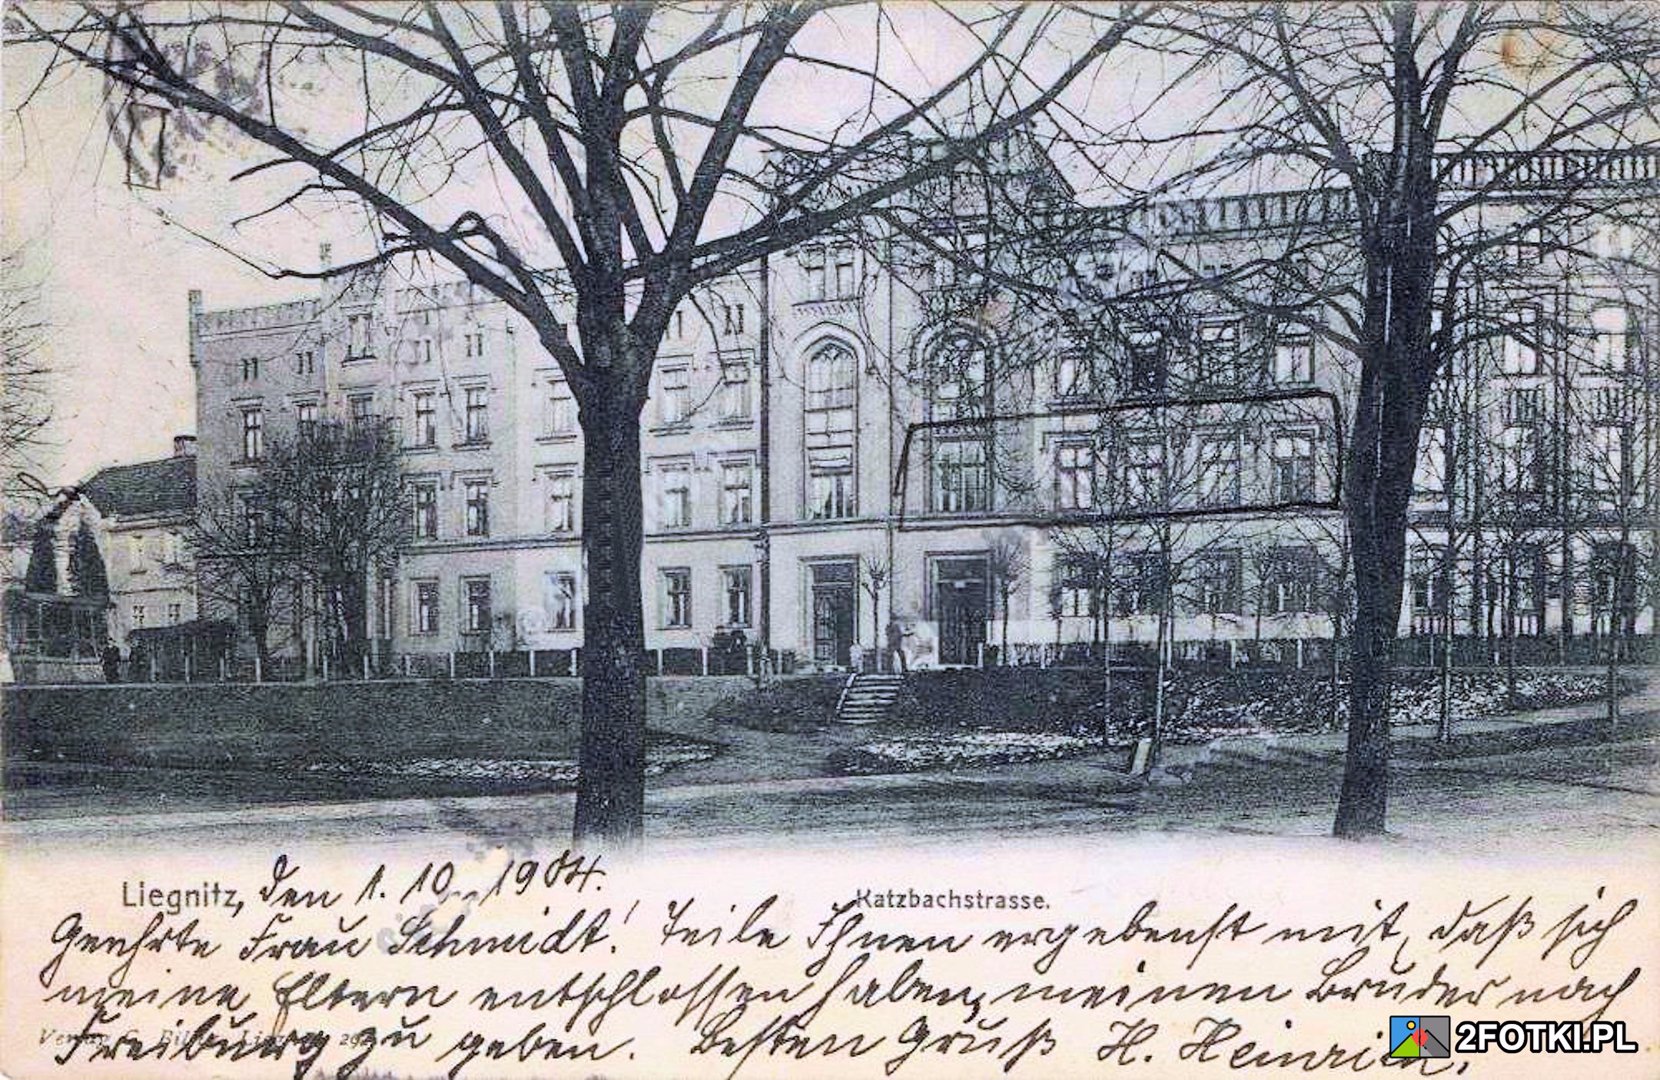 Liegnitz, den 1. 10. 1904.
Katzbachstrasse.
Geehrte Frau Schmidt! Teile Ihnen ergebenst mit, daß sich
meine Eltern entschlossen haben, meinen Bruder nach
Freiburg zu geben. Besten Gruß H. Heinrich.
Verlag
2FOTKI.PL